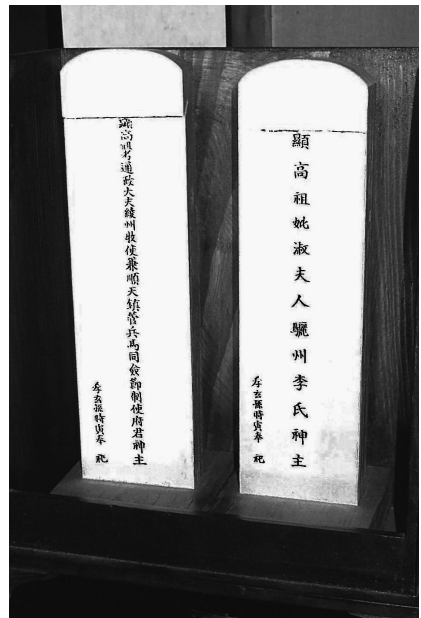 顯高祖妣淑夫人驪州李氏神主
孝玄孫時寅奉祀
顯高祖考通政大夫綾州牧使兼順天鎭管兵馬同僉節制使府君神主
孝玄孫時寅奉祀